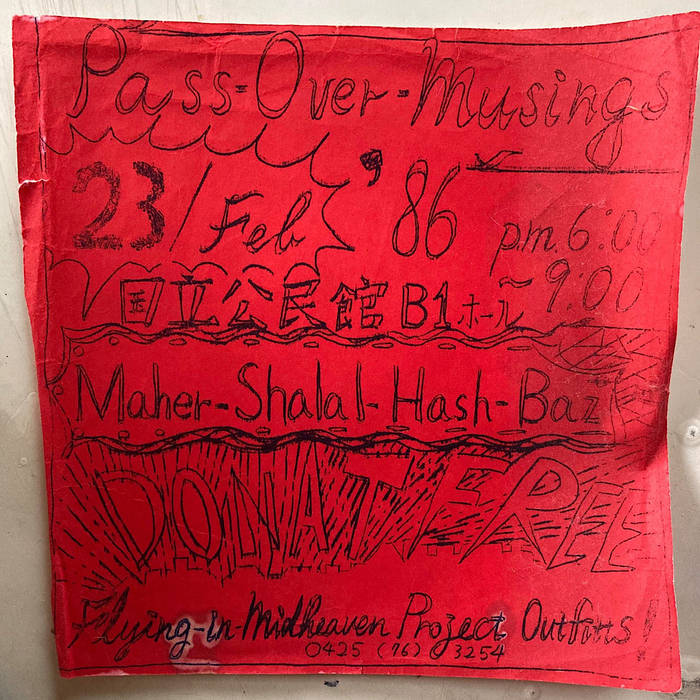 Pass-Over-Musings
23/Feb '86 pm.6:00
~9:00
国立公民館 B1ホール
Maher-Shalal-Hash-Baz
DONAT FREE
Flying-in-Midheaven Project Outfitts!
0425 (76) 3254